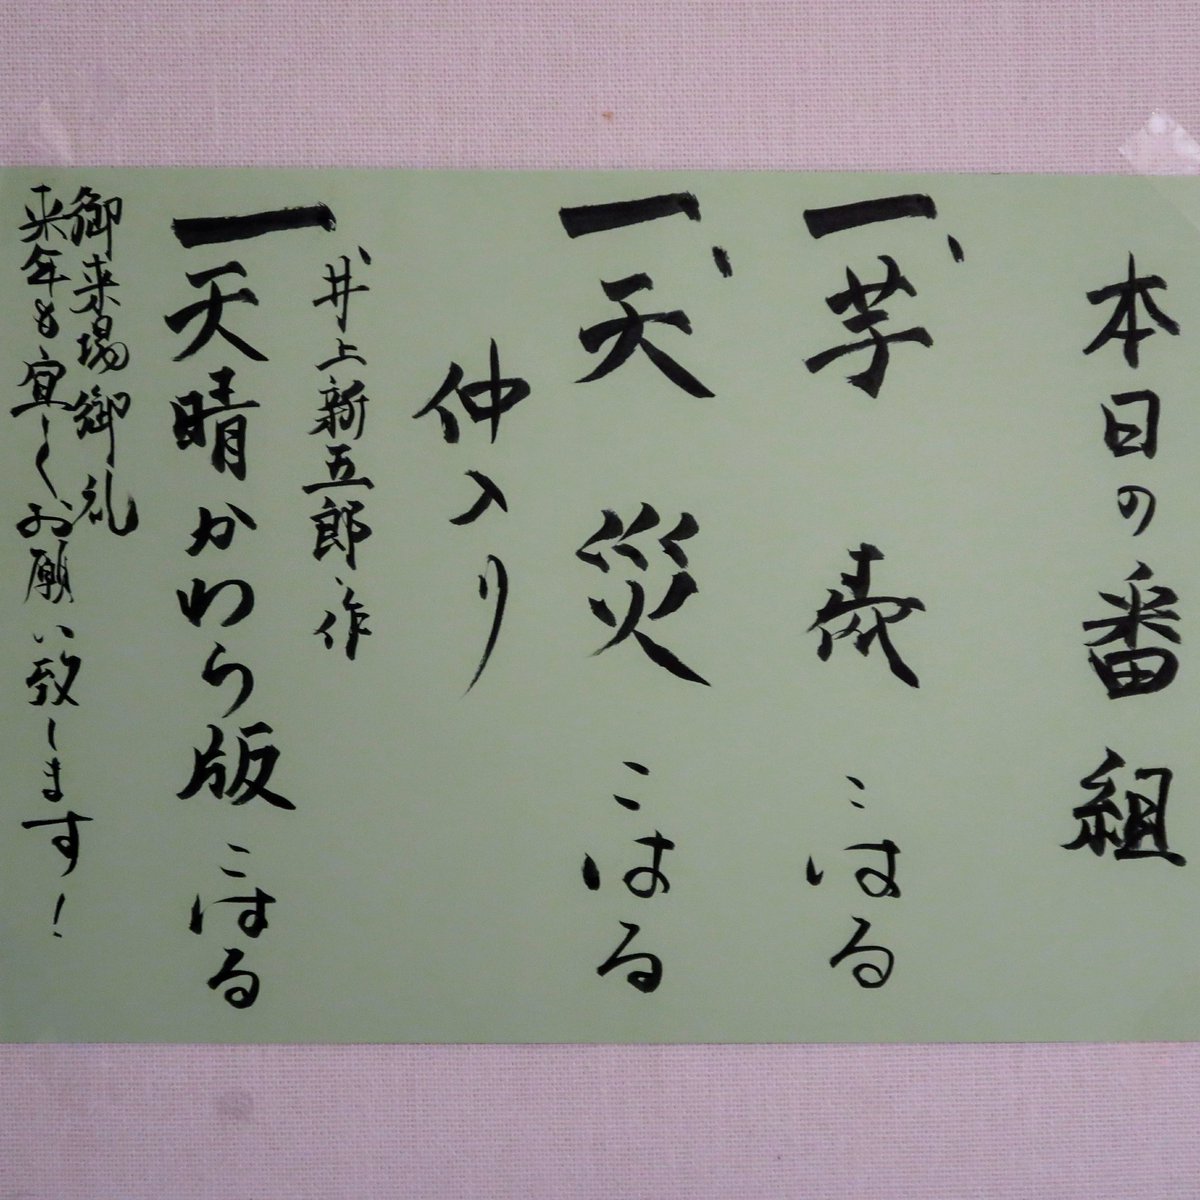 本日の番組
一、芋 こはる
一、天災 こはる
仲入り
井上新五郎、作
一、天晴かわら版 こはる
御来場御礼
来年も宜しくお願い致します！